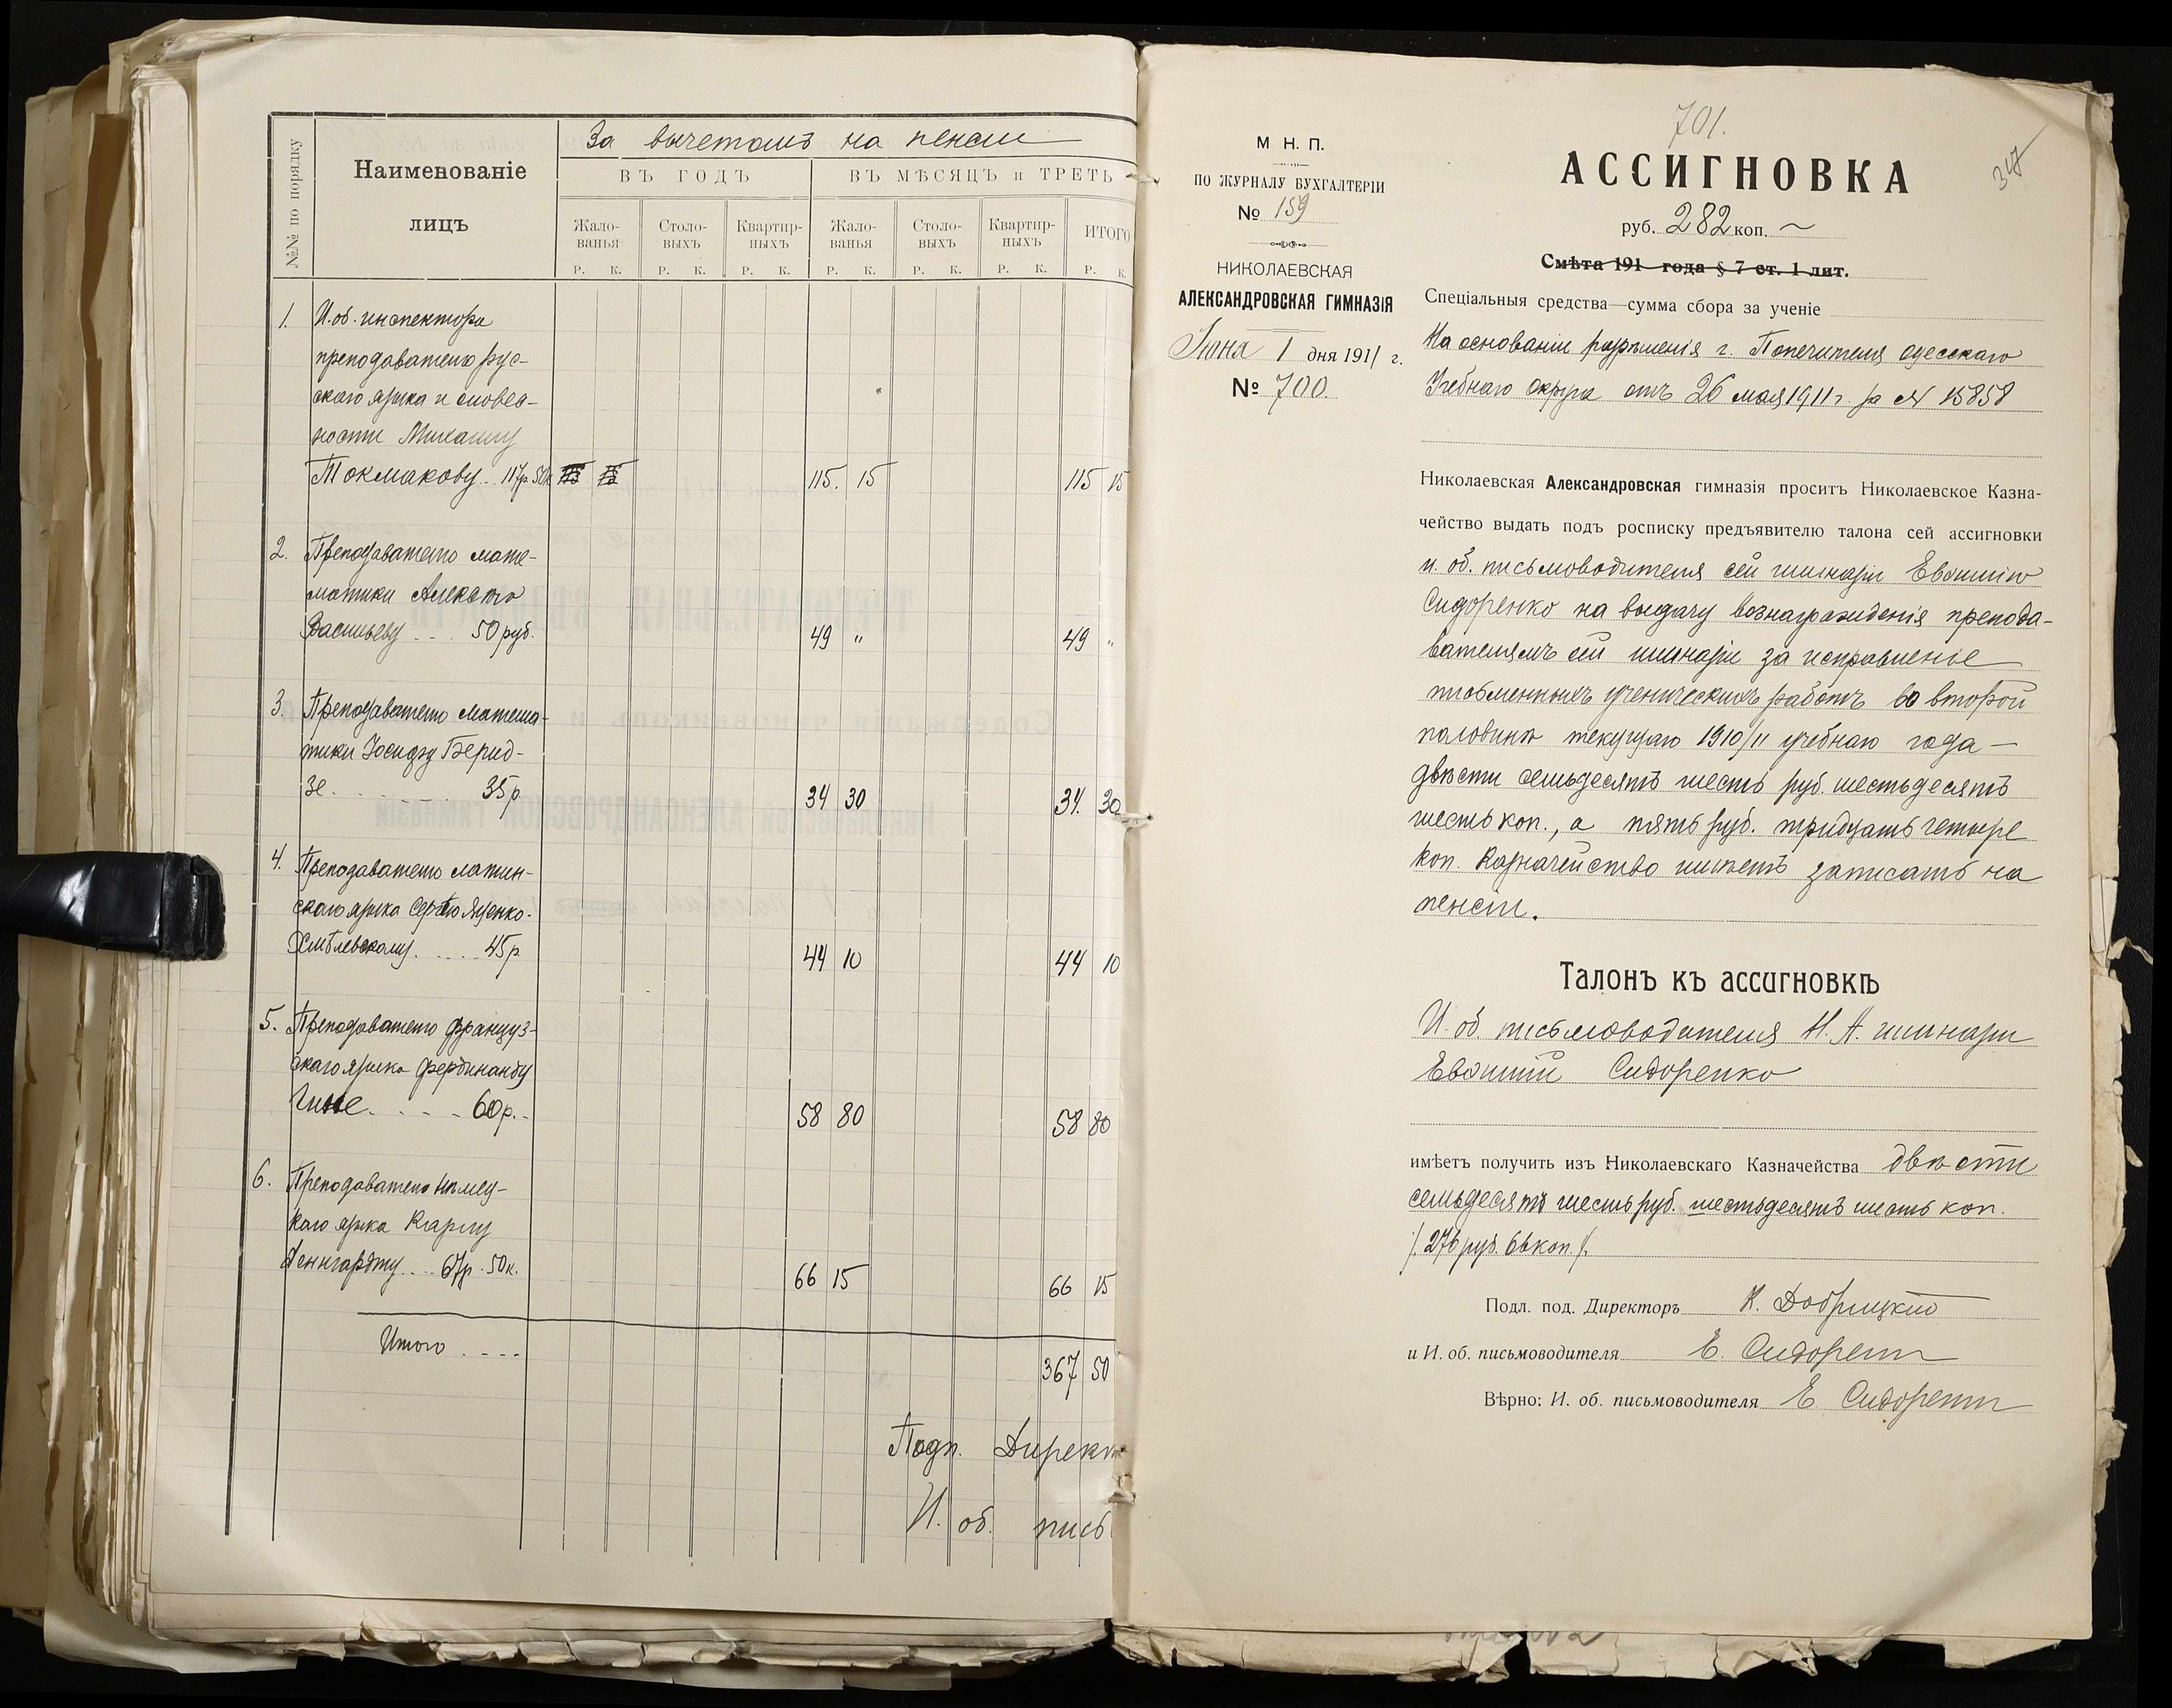 За вычетомъ на пенсіи
№№ по порядку
Наименованіе
лицъ
ВЪ ГОДЪ
ВЪ МѢСЯЦЪ и ТРЕТЬ
Жало-
ванья
Столо-
выхъ
Квартир-
ныхъ
Жало-
ванья
Столо-
выхъ
Квартир-
ныхъ
ИТОГО
Р. К. Р. К. Р. К. Р. К. Р. К. Р. К. Р. К.
1. И. об. инспектора
преподавателю рус-
скаго языка и словес-
ности Михаилу
Токмакову .. 117р. 50к. 115. 15 115 15
2. Преподавателю мате-
матики Алексѣю
Васильеву ... 50 руб. 49 " 49 "
3. Преподавателю матема-
тики Іосифу Берид-
зе ...... 35р. 34 30 34. 30
4. Преподавателю латин-
скаго языка Сергѣю Яценко-
Хмѣлевскому ..... 45р. 44 10 44 10
5. Преподавателю француз-
скаго языка Фердинанду
..... 60р. 58 80 58 80
6. Преподавателю нѣмец-
каго языка Карлу
Ленгардту ... 67р. 50к. 66 15 66 15
Итого .... 367 50
Подп. Дирек
И. об. пись
М. Н. П.
ПО ЖУРНАЛУ БУХГАЛТЕРІИ
№ 159
НИКОЛАЕВСКАЯ
АЛЕКСАНДРОВСКАЯ ГИМНАЗІЯ
Іюня 1 дня 1911 г.
№ 700.
701.
347
АССИГНОВКА
руб. 282 коп. ~
Смѣта 191 года § 7 ст. 1 лит.
Спеціальныя средства—сумма сбора за ученіе
На основаніи разрѣшенія г. Попечителя Одесскаго
Учебнаго Округа отъ 26 мая 1911 г. за № 15858
Николаевская Александровская гимназія проситъ Николаевское Казна-
чейство выдать подъ росписку предъявителю талона сей ассигновки
и. об. письмоводителя сей гимназіи Евфимію
Сидоренко на выдачу вознагражденія препода-
вателямъ сей гимназіи за исправленіе
письменныхъ ученическихъ работъ во второй
половинѣ текущаго 1910/11 учебнаго года —
двѣсти семьдесятъ шесть руб. шестьдесятъ
шесть коп., а пять руб. тридцать четыре
коп. Казначейство имѣетъ записать на
пенсіи.
Талонъ къ ассигновкѣ
И. об. письмоводителя Н. А. гимназіи
Евфимій Сидоренко
имѣетъ получить изъ Николаевскаго Казначейства двѣсти
семьдесятъ шесть руб. шестьдесятъ шесть коп.
/. 276 руб. 66 коп. /.
Подл. под. Директоръ К. Добрицкій
и И. об. письмоводителя Е. Сидоренко
Вѣрно: И. об. письмоводителя Е Сидоренко